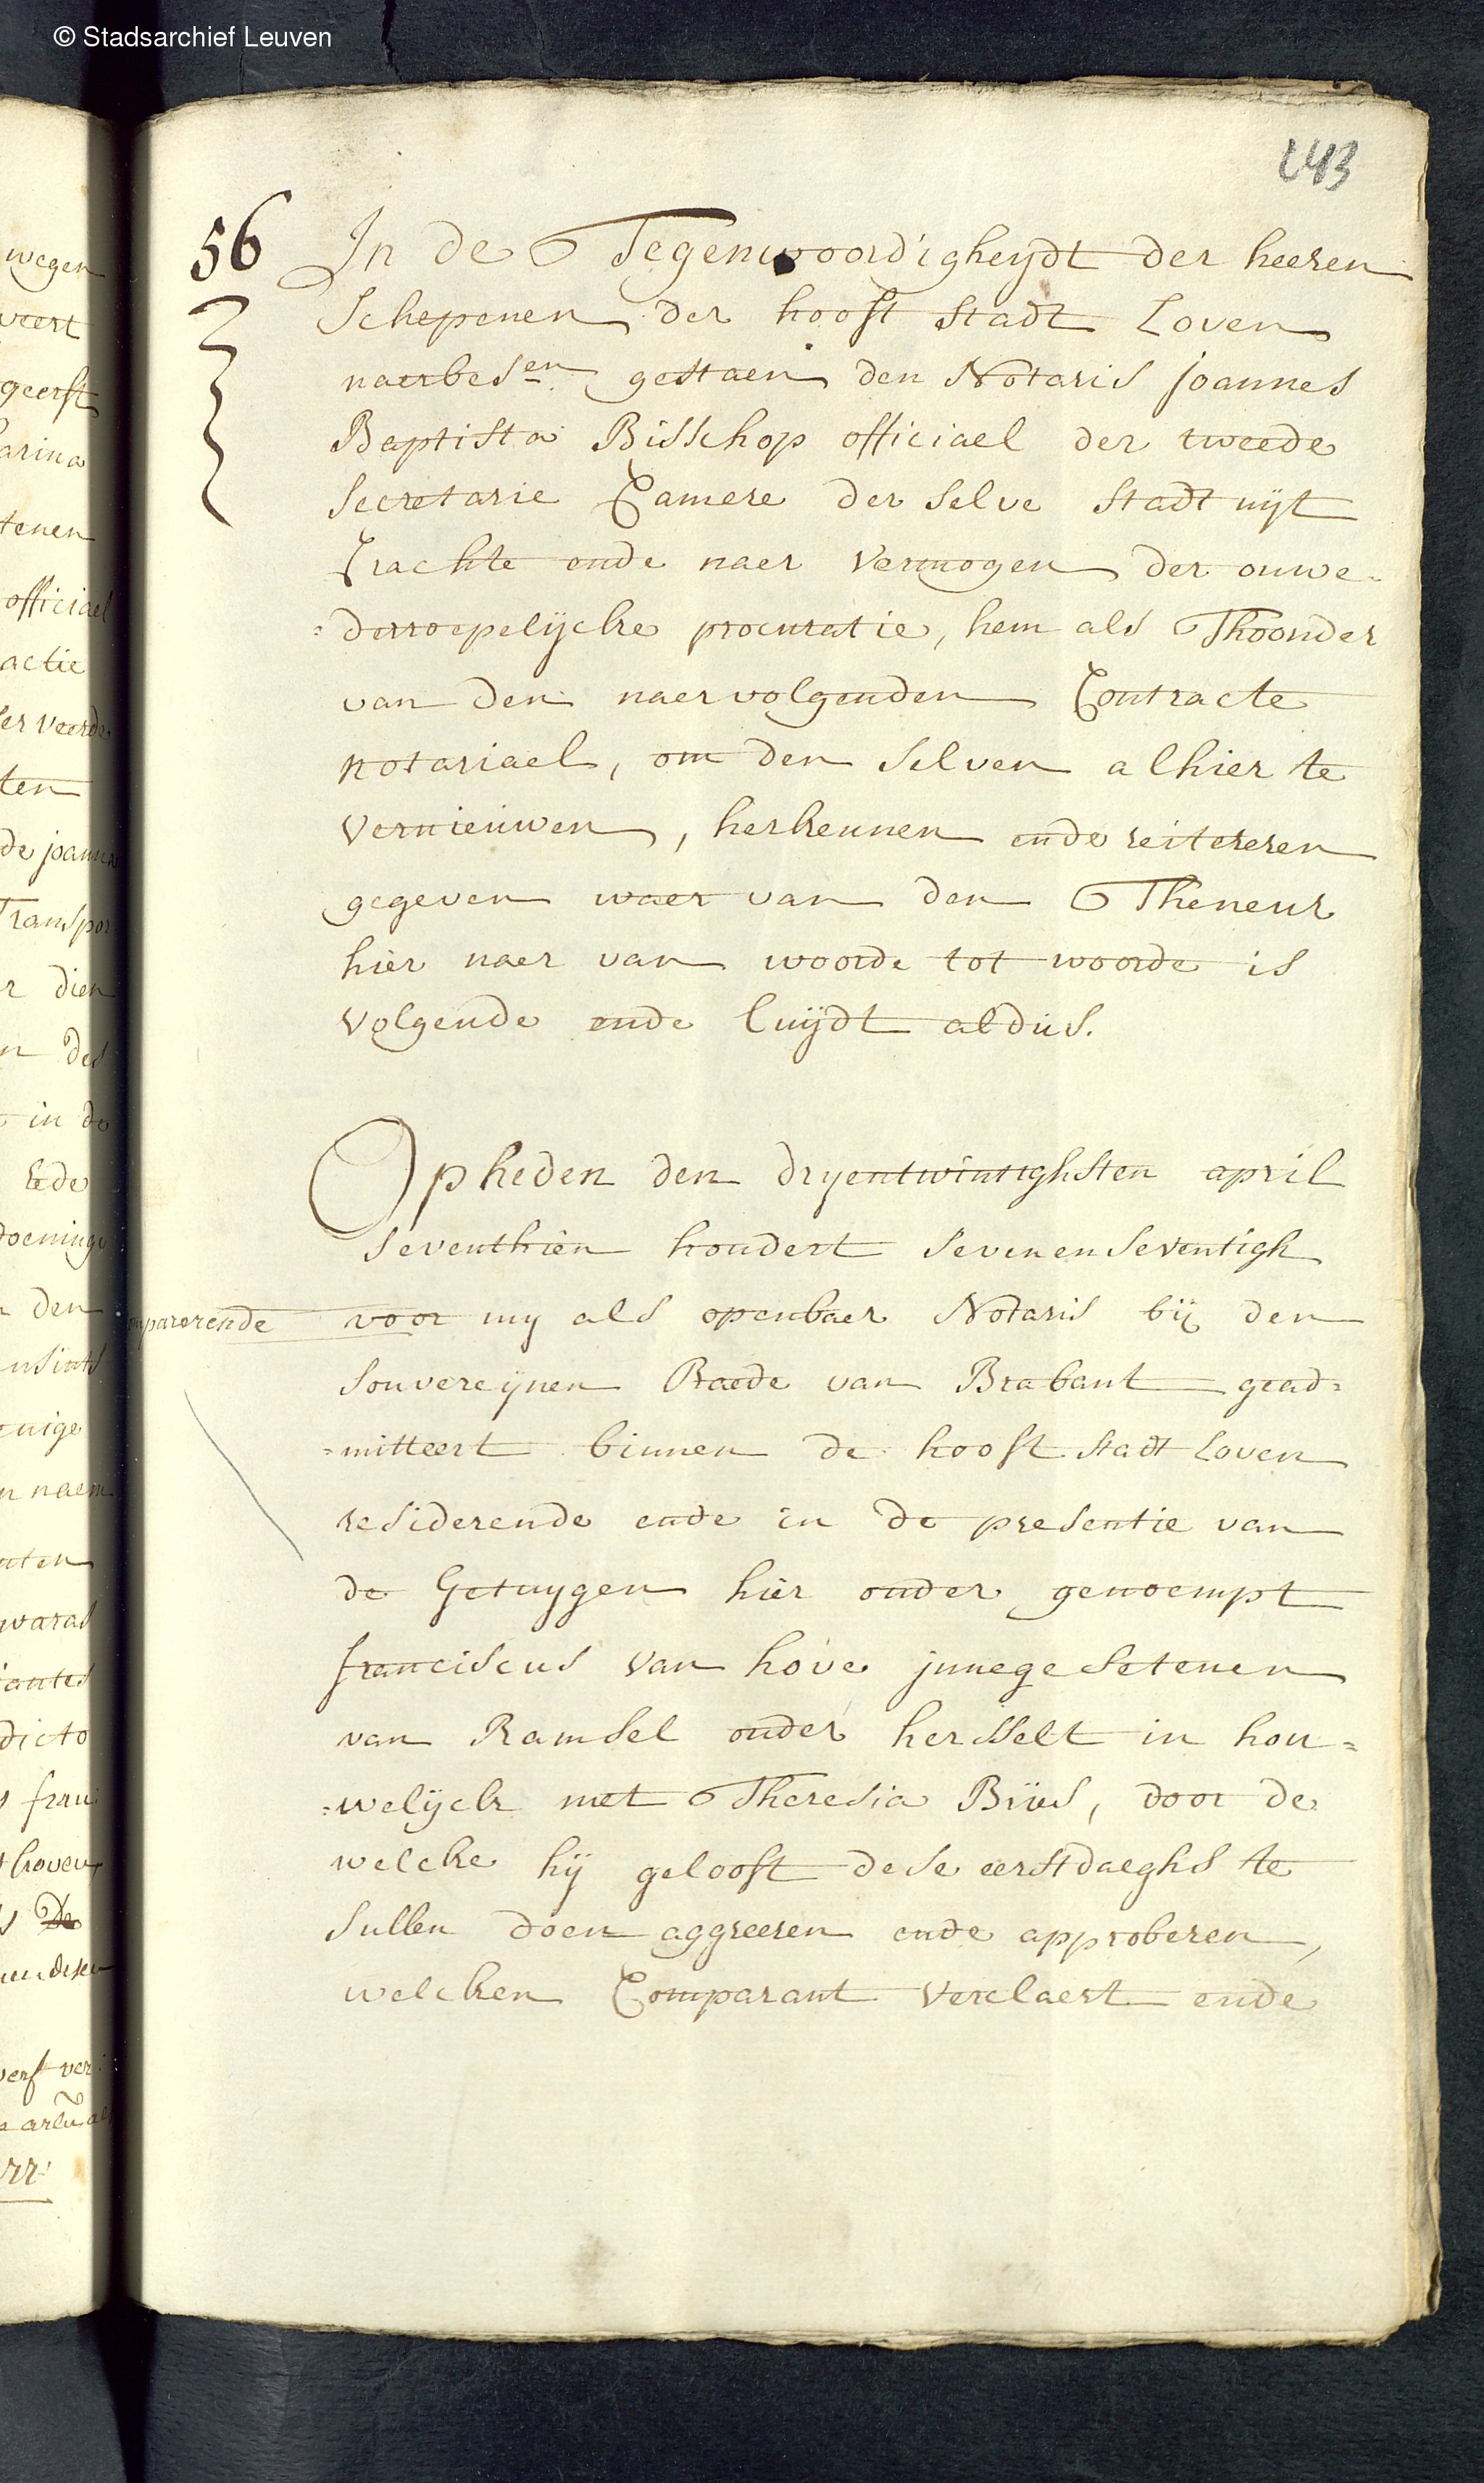 © Stadsarchief Leuven
243
56 In de Tegenwoordigheydt der heeren
Schepenen der hooft stadt Loven
naerbes:en gestaen den Notaris joannes
Baptista Bisschop officiael der tweede
secretarie Camere der selve stadt uijt
Crachte ende naer vermogen der onwe=
=derroepelijcke procuratie, hem als Thoonder
van den naervolgenden Contracte
notariael, om den selven alhier te
vernieuwen, herkennen ende reitereren
gegeven waer van den Theneur
hier naer van woorde tot woorde is
volgende ende luijdt aldus.
Op heden den dryentwintighsten april
seventhien hondert sevenenseventigh
comparerende voor my als openbaer Notaris bij den
souvereijnen Raede van Brabant gead=
=mitteert binnen de hooft stadt Loven
residerende ende in de presentie van
de Getuygen hier onder genoempt
franciscus van hove innegesetenen
van Ramsel onder hersselt in hou=
=welijck met Theresia Büs, door de
welcke hij belooft dese eerstdaeghs te
sullen doen aggreeren ende approberen,
welcken Comparant verclaert ende
wegen
veert
geerft
tenen
officiael
actie
ten
de joanna
Transpor
dien
des
in de
den
naem
dicto
fran
De